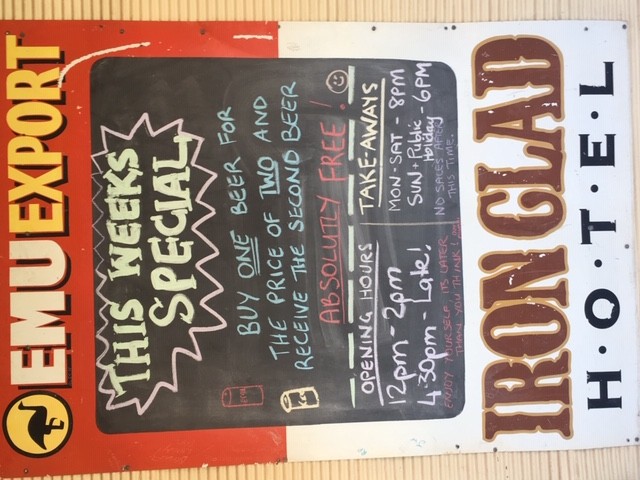 EMU EXPORT
THIS WEEKS
SPECIAL
BUY ONE BEER FOR
THE PRICE OF TWO AND
RECEIVE THE SECOND BEER
ABSOLUTLY FREE!
OPENING HOURS
12pm - 2pm
4:30pm - Late!
ENJOY YOURSELF ITS LATER
THAN YOU THINK!
TAKE-AWAYS
MON - SAT - 8PM
SUN + Public Holiday - 6PM
NO SALES AFTER
THIS TIME.
IRON CLAD
H·O·T·E·L